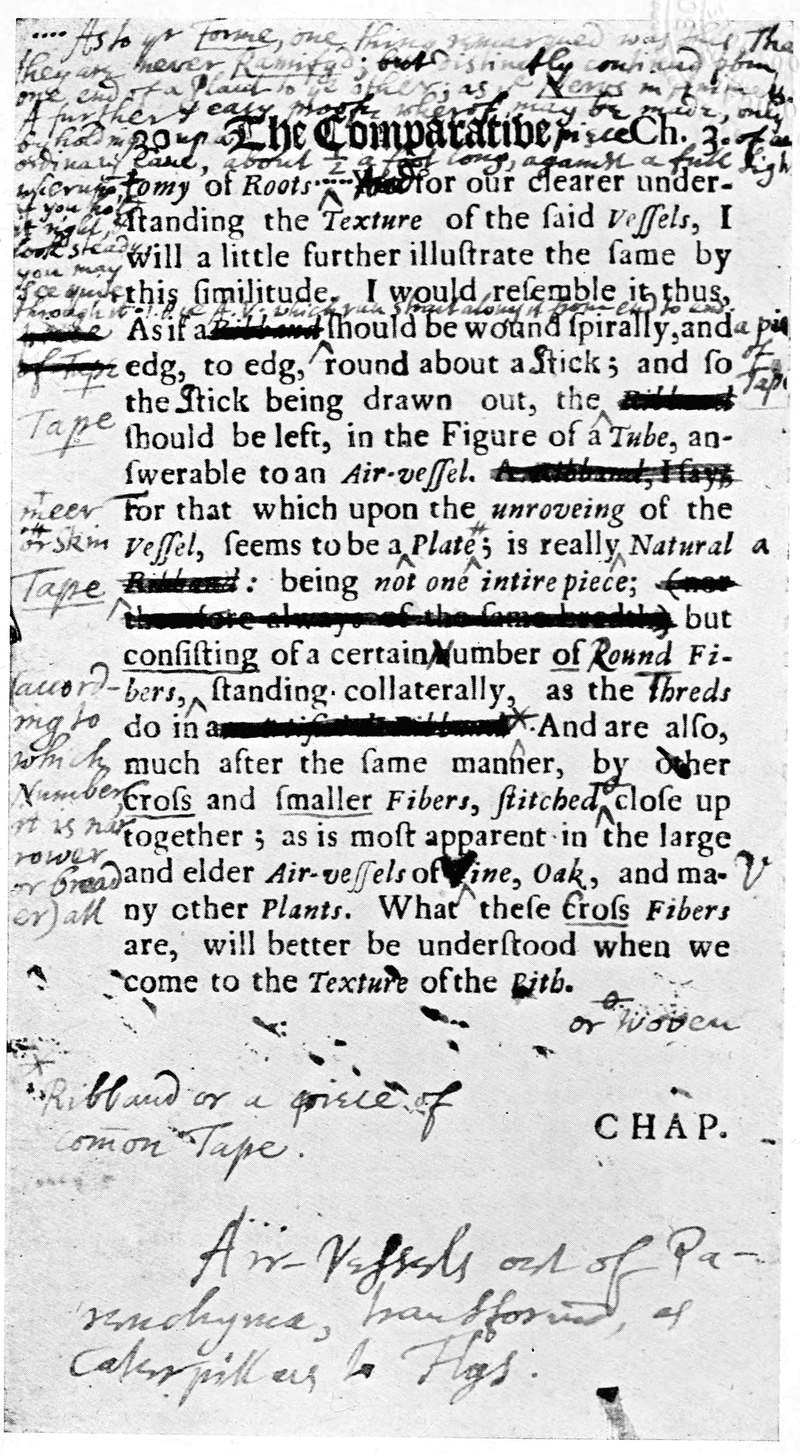 .... As to yr Forme, one thing remarqued was this, That
they are never Ramifyd; but distinctly continud from
one end of a Plant to ye other; as ye Nerves in Animals.
A further & easy proof whereof may be made, only
by holding up a piece of an
30 The Comparative Ch. 3.
ordinary Cane, about ½ a foot long, against a full Light
tomy of Roots .... And for our clearer under-
if you hold
ſtanding the Texture of the ſaid Veſſels, I
it right, &
look steady,
will a little further illuſtrate the ſame by
you may
see quite
this ſimilitude. I would reſemble it thus,
through it ye A.V. which run strait along it from end to end
As if a Ribband ſhould be wound ſpirally, and a piece
of Tape
edg, to edg, round about a Stick; and ſo
of
Tape
the Stick being drawn out, the Ribband
Tape
ſhould be left, in the Figure of a Tube, an-
ſwerable to an Air-veſſel. A Ribband, I ſay;
meer
For that which upon the unroveing of the
or Skin
Veſſel, ſeems to be a Plate; is really Natural a
Tape
Ribband: being not one intire piece; (nor
therefore always of the ſame breadth) but
conſiſting of a certain Number of Round Fi-
(accord-
bers, ſtanding collaterally, as the Threds
ing to
do in a Ribband. And are alſo,
which
much after the ſame manner, by other
Number
Croſs and ſmaller Fibers, ſtitched cloſe up
it is nar
together; as is moſt apparent in the large
rower
or broad
and elder Air-veſſels of Vine, Oak, and ma- V
er) all
ny other Plants. What theſe Croſs Fibers
are, will better be underſtood when we
come to the Texture of the Pith.
or Woven
Ribband or a piece of
com̄on Tape.
CHAP.
Air-Vessels out of Pa-
renchyma, transformd, as
Caterpillars to Flys.